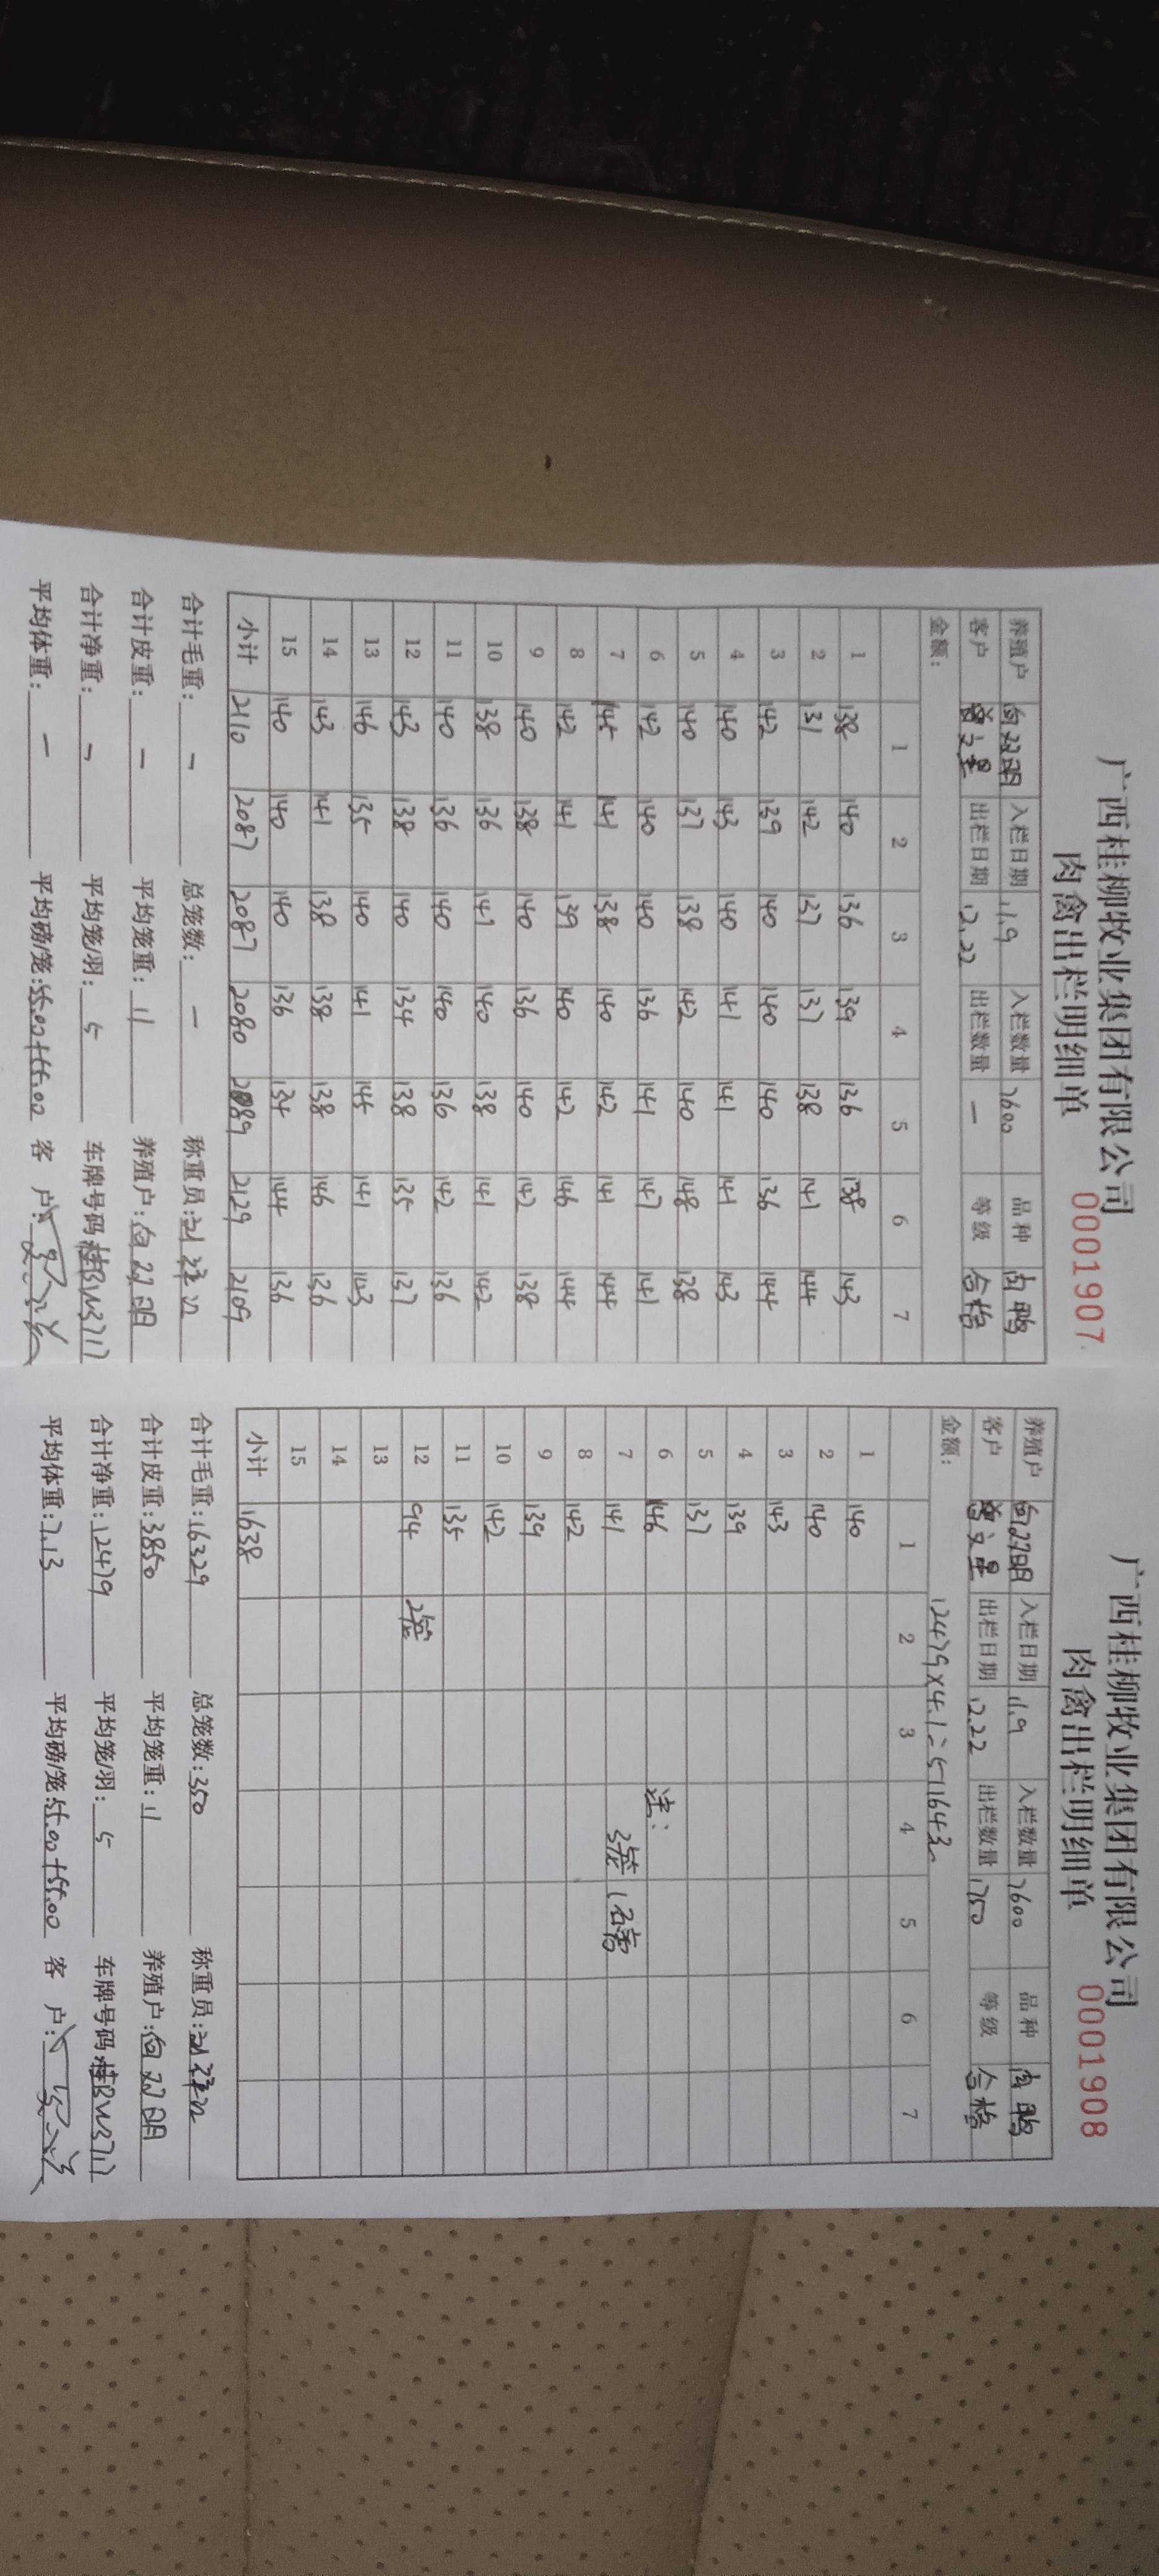 广西桂柳牧业集团有限公司
肉禽出栏明细单
0001907
养殖户 向双明 入栏日期 11.9 入栏数量 7600 品种 肉鸭
客户 曾文星 出栏日期 12.22 出栏数量 一 等级 合格
金额:
1 2 3 4 5 6 7
1 138 140 136 139 136 138 143
2 131 142 137 137 138 141 144
3 142 139 140 140 140 136 144
4 140 143 140 141 141 141 143
5 140 137 138 142 140 148 138
6 142 140 140 136 141 147 141
7 145 141 138 140 142 141 144
8 142 141 139 140 142 146 144
9 140 138 140 136 140 142 138
10 138 136 141 140 138 141 142
11 140 136 140 140 136 142 136
12 143 138 140 134 138 135 137
13 146 135 140 141 145 141 143
14 143 141 138 138 138 146 136
15 140 140 140 136 134 144 136
小计 2110 2087 2087 2080 2089 2129 2109
合计毛重: 一 总笼数: 一 称重员:
合计皮重: 一 平均笼重: 11 养殖户: 向双明
合计净重: 一 平均笼/羽: 5 车牌号码 桂BW3717
平均体重: 一 平均磅/笼: 55.00+55.00 客户:
广西桂柳牧业集团有限公司
肉禽出栏明细单
0001908
养殖户 向双明 入栏日期 11.9 入栏数量 7600 品种 肉鸭
客户 曾文星 出栏日期 12.22 出栏数量 1750 等级 合格
金额: 12479×4.1=51164元
1 2 3 4 5 6 7
1 140
2 140
3 143
4 139
5 137
6 146 注:
7 141 3笼
8 142
9 139
10 142
11 135
12 94 2笼
13
14
15
小计 1638
合计毛重: 16329 总笼数: 350 称重员:
合计皮重: 3850 平均笼重: 11 养殖户: 向双明
合计净重: 12479 平均笼/羽: 5 车牌号码 桂BW3717
平均体重: 7.13 平均磅/笼: 55.00+55.00 客户: